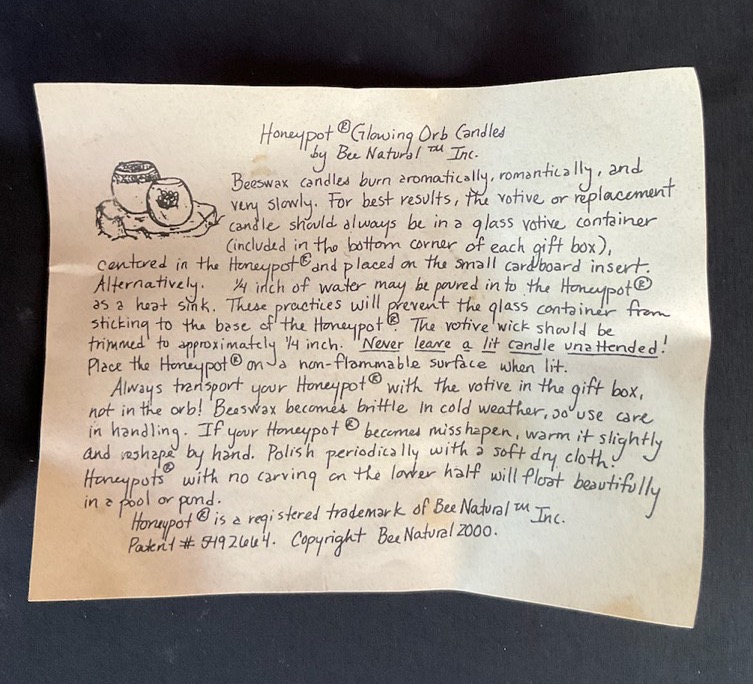 Honeypot® Glowing Orb Candles
by Bee Natural™ Inc.
Beeswax candles burn aromatically, romantically, and
very slowly. For best results, the votive or replacement
candle should always be in a glass votive container
(included in the bottom corner of each gift box),
centered in the Honeypot® and placed on the small cardboard insert.
Alternatively. 1/4 inch of water may be poured in to the Honeypot®
as a heat sink. These practices will prevent the glass container from
sticking to the base of the Honeypot®. The votive wick should be
trimmed to approximately 1/4 inch. Never leave a lit candle unattended!
Place the Honeypot® on a non-flammable surface when lit.
Always transport your Honeypot® with the votive in the gift box,
not in the orb! Beeswax becomes brittle in cold weather, so use care
in handling. If your Honeypot® becomes misshapen, warm it slightly
and reshape by hand. Polish periodically with a soft dry cloth.
Honeypots® with no carving on the lower half will float beautifully
in a pool or pond.
Honeypot® is a registered trademark of Bee Natural™ Inc.
Patent # 5492664. Copyright Bee Natural 2000.